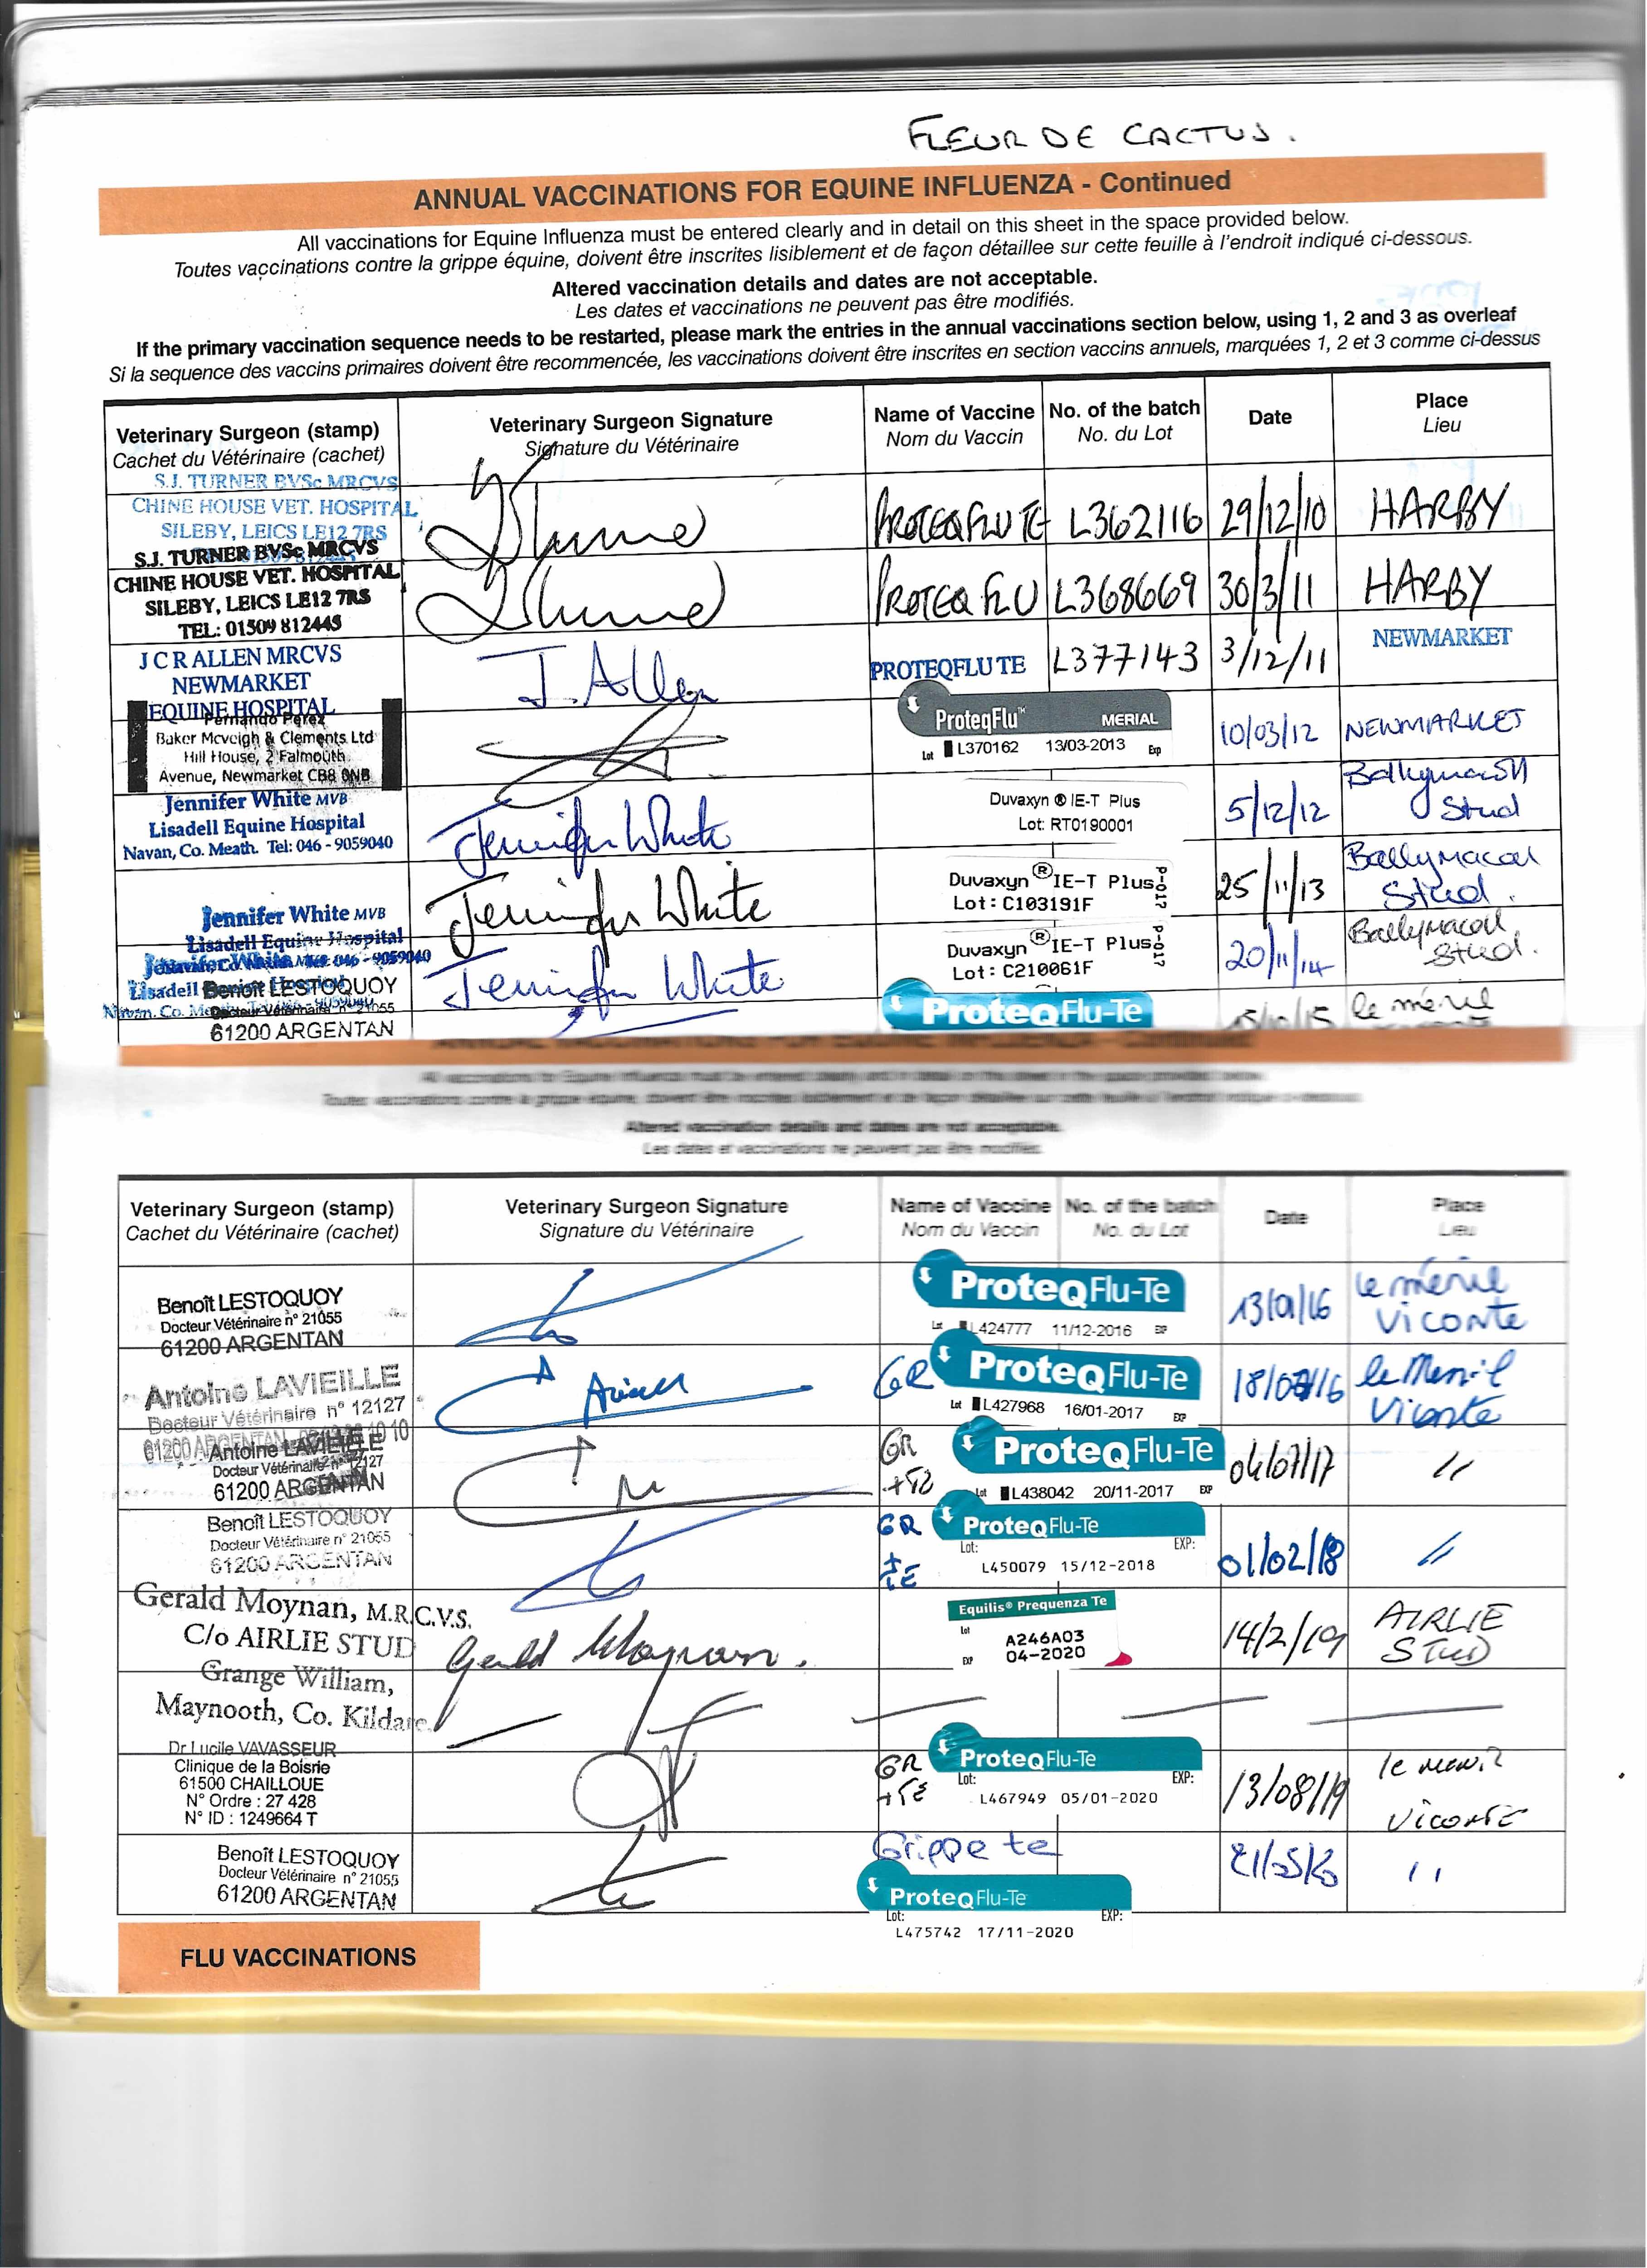 FLEUR DE CACTUS.
ANNUAL VACCINATIONS FOR EQUINE INFLUENZA - Continued
All vaccinations for Equine Influenza must be entered clearly and in detail on this sheet in the space provided below.
Toutes vaccinations contre la grippe équine, doivent être inscrites lisiblement et de façon détaillee sur cette feuille à l'endroit indiqué ci-dessous.
Altered vaccination details and dates are not acceptable.
Les dates et vaccinations ne peuvent pas être modifiés.
If the primary vaccination sequence needs to be restarted, please mark the entries in the annual vaccinations section below, using 1, 2 and 3 as overleaf
Si la sequence des vaccins primaires doivent être recommencée, les vaccinations doivent être inscrites en section vaccins annuels, marquées 1, 2 et 3 comme ci-dessus
Veterinary Surgeon (stamp) Veterinary Surgeon Signature Name of Vaccine No. of the batch Date Place
Cachet du Vétérinaire (cachet) Signature du Vétérinaire Nom du Vaccin No. du Lot Lieu
S.J. TURNER BVSc MRCVS
CHINE HOUSE VET. HOSPITAL
SILEBY, LEICS LE12 7RS
PROTEQFLU TE L362116 29/12/10 HARBY
S.J. TURNER BVSc MRCVS
CHINE HOUSE VET. HOSPITAL
SILEBY, LEICS LE12 7RS
TEL: 01509 812445
PROTEQ FLU L368669 30/3/11 HARBY
J C R ALLEN MRCVS
NEWMARKET
EQUINE HOSPITAL
J. Allen PROTEQFLU TE L377143 3/12/11 NEWMARKET
Fernando Perez
Baker Mcveigh & Clements Ltd
Hill House, 2 Falmouth
Avenue, Newmarket CB8 0NB
ProteqFlu™ MERIAL
Lot L370162 13/03/2013 Exp
10/03/12 NEWMARKET
Jennifer White MVB
Lisadell Equine Hospital
Navan, Co. Meath. Tel: 046 - 9059040
Jennifer White
Duvaxyn ® IE-T Plus
Lot: RT0190001
5/12/12
Stud
Jennifer White MVB
Lisadell Equine Hospital
Jennifer White
Duvaxyn ® IE-T Plus P-017
Lot: C103191F
25/11/13 Ballymacoll
Stud.
Jennifer White
Duvaxyn ® IE-T Plus P-017
Lot: C210061F
20/11/14 Ballymacoll
Stud.
Benoît LESTOQUOY
Docteur Vétérinaire n° 21055
61200 ARGENTAN
ProteqFlu-Te
le ménil
ANNUAL VACCINATIONS FOR EQUINE INFLUENZA - Continued
All vaccinations for Equine Influenza must be entered clearly and in detail on this sheet in the space provided below.
Toutes vaccinations contre la grippe équine, doivent être inscrites lisiblement et de façon détaillee sur cette feuille à l'endroit indiqué ci-dessous.
Altered vaccination details and dates are not acceptable.
Les dates et vaccinations ne peuvent pas être modifiés.
Veterinary Surgeon (stamp) Veterinary Surgeon Signature Name of Vaccine No. of the batch Date Place
Cachet du Vétérinaire (cachet) Signature du Vétérinaire Nom du Vaccin No. du Lot Lieu
Benoît LESTOQUOY
Docteur Vétérinaire n° 21055
61200 ARGENTAN
ProteqFlu-Te
Lot L424777 11/12-2016 EXP
13/01/16 le ménil
Viconte
Antoine LAVIEILLE
Docteur Vétérinaire n° 12127
61200 ARGENTAN
GR ProteqFlu-Te
Lot L427968 16/01-2017 EXP
le Menil
Viconte
Antoine LAVIEILLE
Docteur Vétérinaire n° 12127
61200 ARGENTAN
GR ProteqFlu-Te
Lot L438042 20/11-2017 EXP
04/07/17 "
Benoît LESTOQUOY
Docteur Vétérinaire n° 21055
61200 ARGENTAN
GR
+TE
ProteqFlu-Te
Lot: EXP:
L450079 15/12-2018
01/02/18 "
Gerald Moynan, M.R.C.V.S.
C/o AIRLIE STUD
Grange William,
Maynooth, Co. Kildare.
Gerald Moynan.
Equilis® Prequenza Te
Lot A246A03
EXP 04-2020
14/2/19 AIRLIE
STUD
Dr Lucile VAVASSEUR
Clinique de la Boisrie
61500 CHAILLOUE
N° Ordre : 27 428
N° ID : 1249664 T
GR
+TE
ProteqFlu-Te
Lot: EXP:
L467949 05/01-2020
13/08/19 le menil
Viconte
Benoît LESTOQUOY
Docteur Vétérinaire n° 21055
61200 ARGENTAN
Grippe te
ProteqFlu-Te
Lot: EXP:
L475742 17/11-2020
"
FLU VACCINATIONS